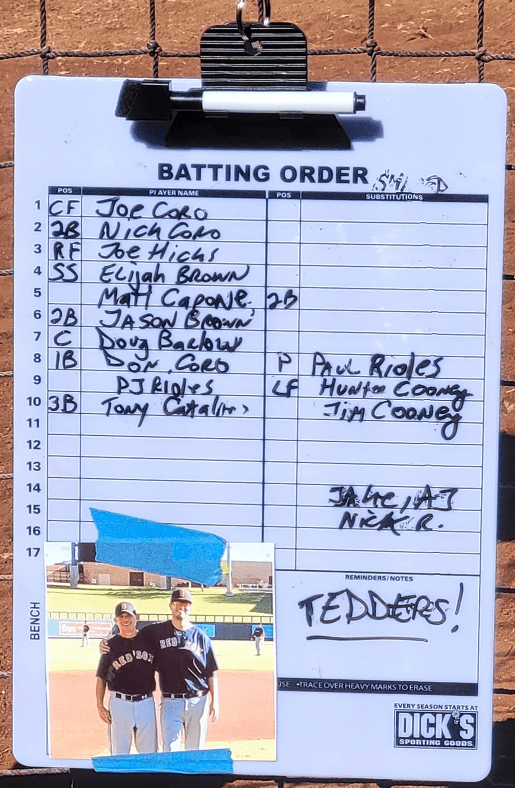 BATTING ORDER
POS PLAYER NAME POS SUBSTITUTIONS
1 CF JOE CORO
2 2B NICK CORO
3 RF JOE HICKS
4 SS ELIJAH BROWN
5 MATT CAPONE 2B
6 2B JASON BROWN
7 C DOUG BARLOW
8 1B DON CORO P PAUL RIOLES
9 PJ RIOLES LF HUNTER COONEY
10 3B TONY JIM COONEY
11
12
13
14 JAKE, AJ
15 NICK R.
16
17
REMINDERS/NOTES
TEDDERS!
BENCH
RED SOX
RED
USE •TRACE OVER HEAVY MARKS TO ERASE
EVERY SEASON STARTS AT
DICK'S
SPORTING GOODS